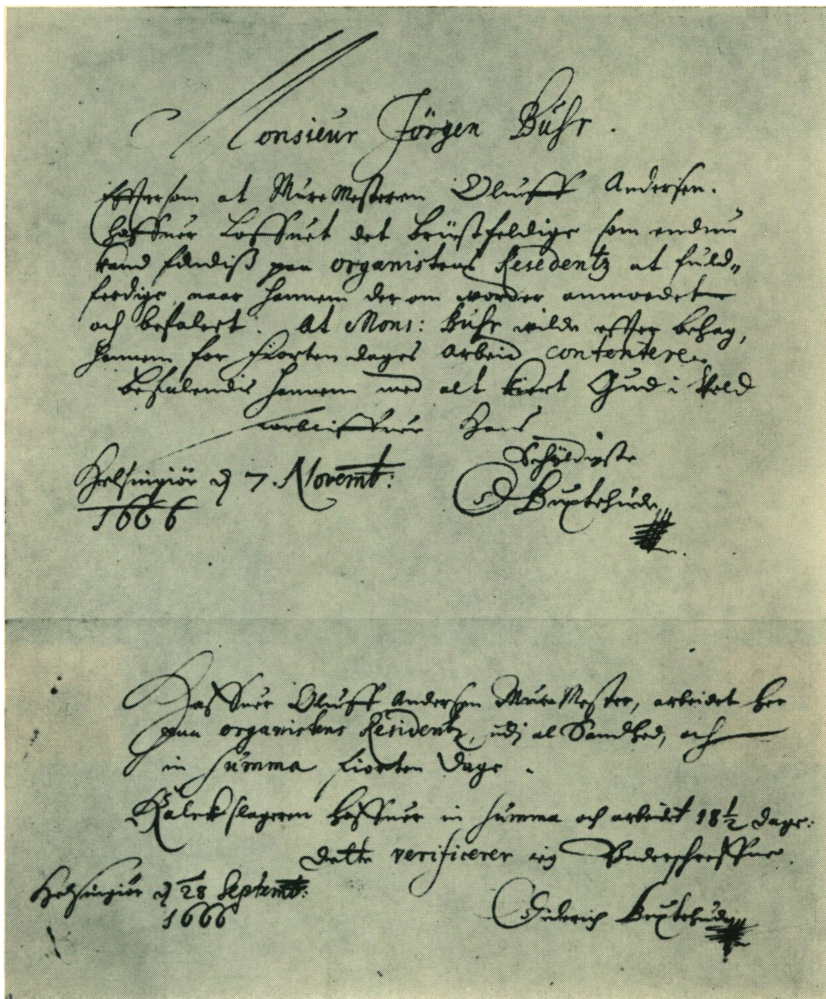 Monsieur Jörgen Buhr.
Effterson at Mure Mesteren Oluff Andersen.
haffuer Loffuet det Brüstfeldige som endnu
kand findiß paa organistens Residentz at fuld„
ferdige, naar hannem der om worder anmoedet
och befalert. At Mons: Buhr wilde effter behag,
hannem for fiorten dages arbeid contentere.
befalendis hannem med alt kiert Gud i Vold
forbliffuer Hans
Schyldigste
Helsingiör d 7. Novemb:
1666
D Buxtehude
Haffuer Oluff Andersen Mure Mester, arbeidet her
paa organistens Residentz, udj al Sandhed, och
in summa fiorten dage.
Kalckslageren haffuer in summa och arbeidet 18½ dage:
dette verificerer ieg Underschreffne.
Helsingiör d 28 Septemb:
1666
Diderich Buxtehude